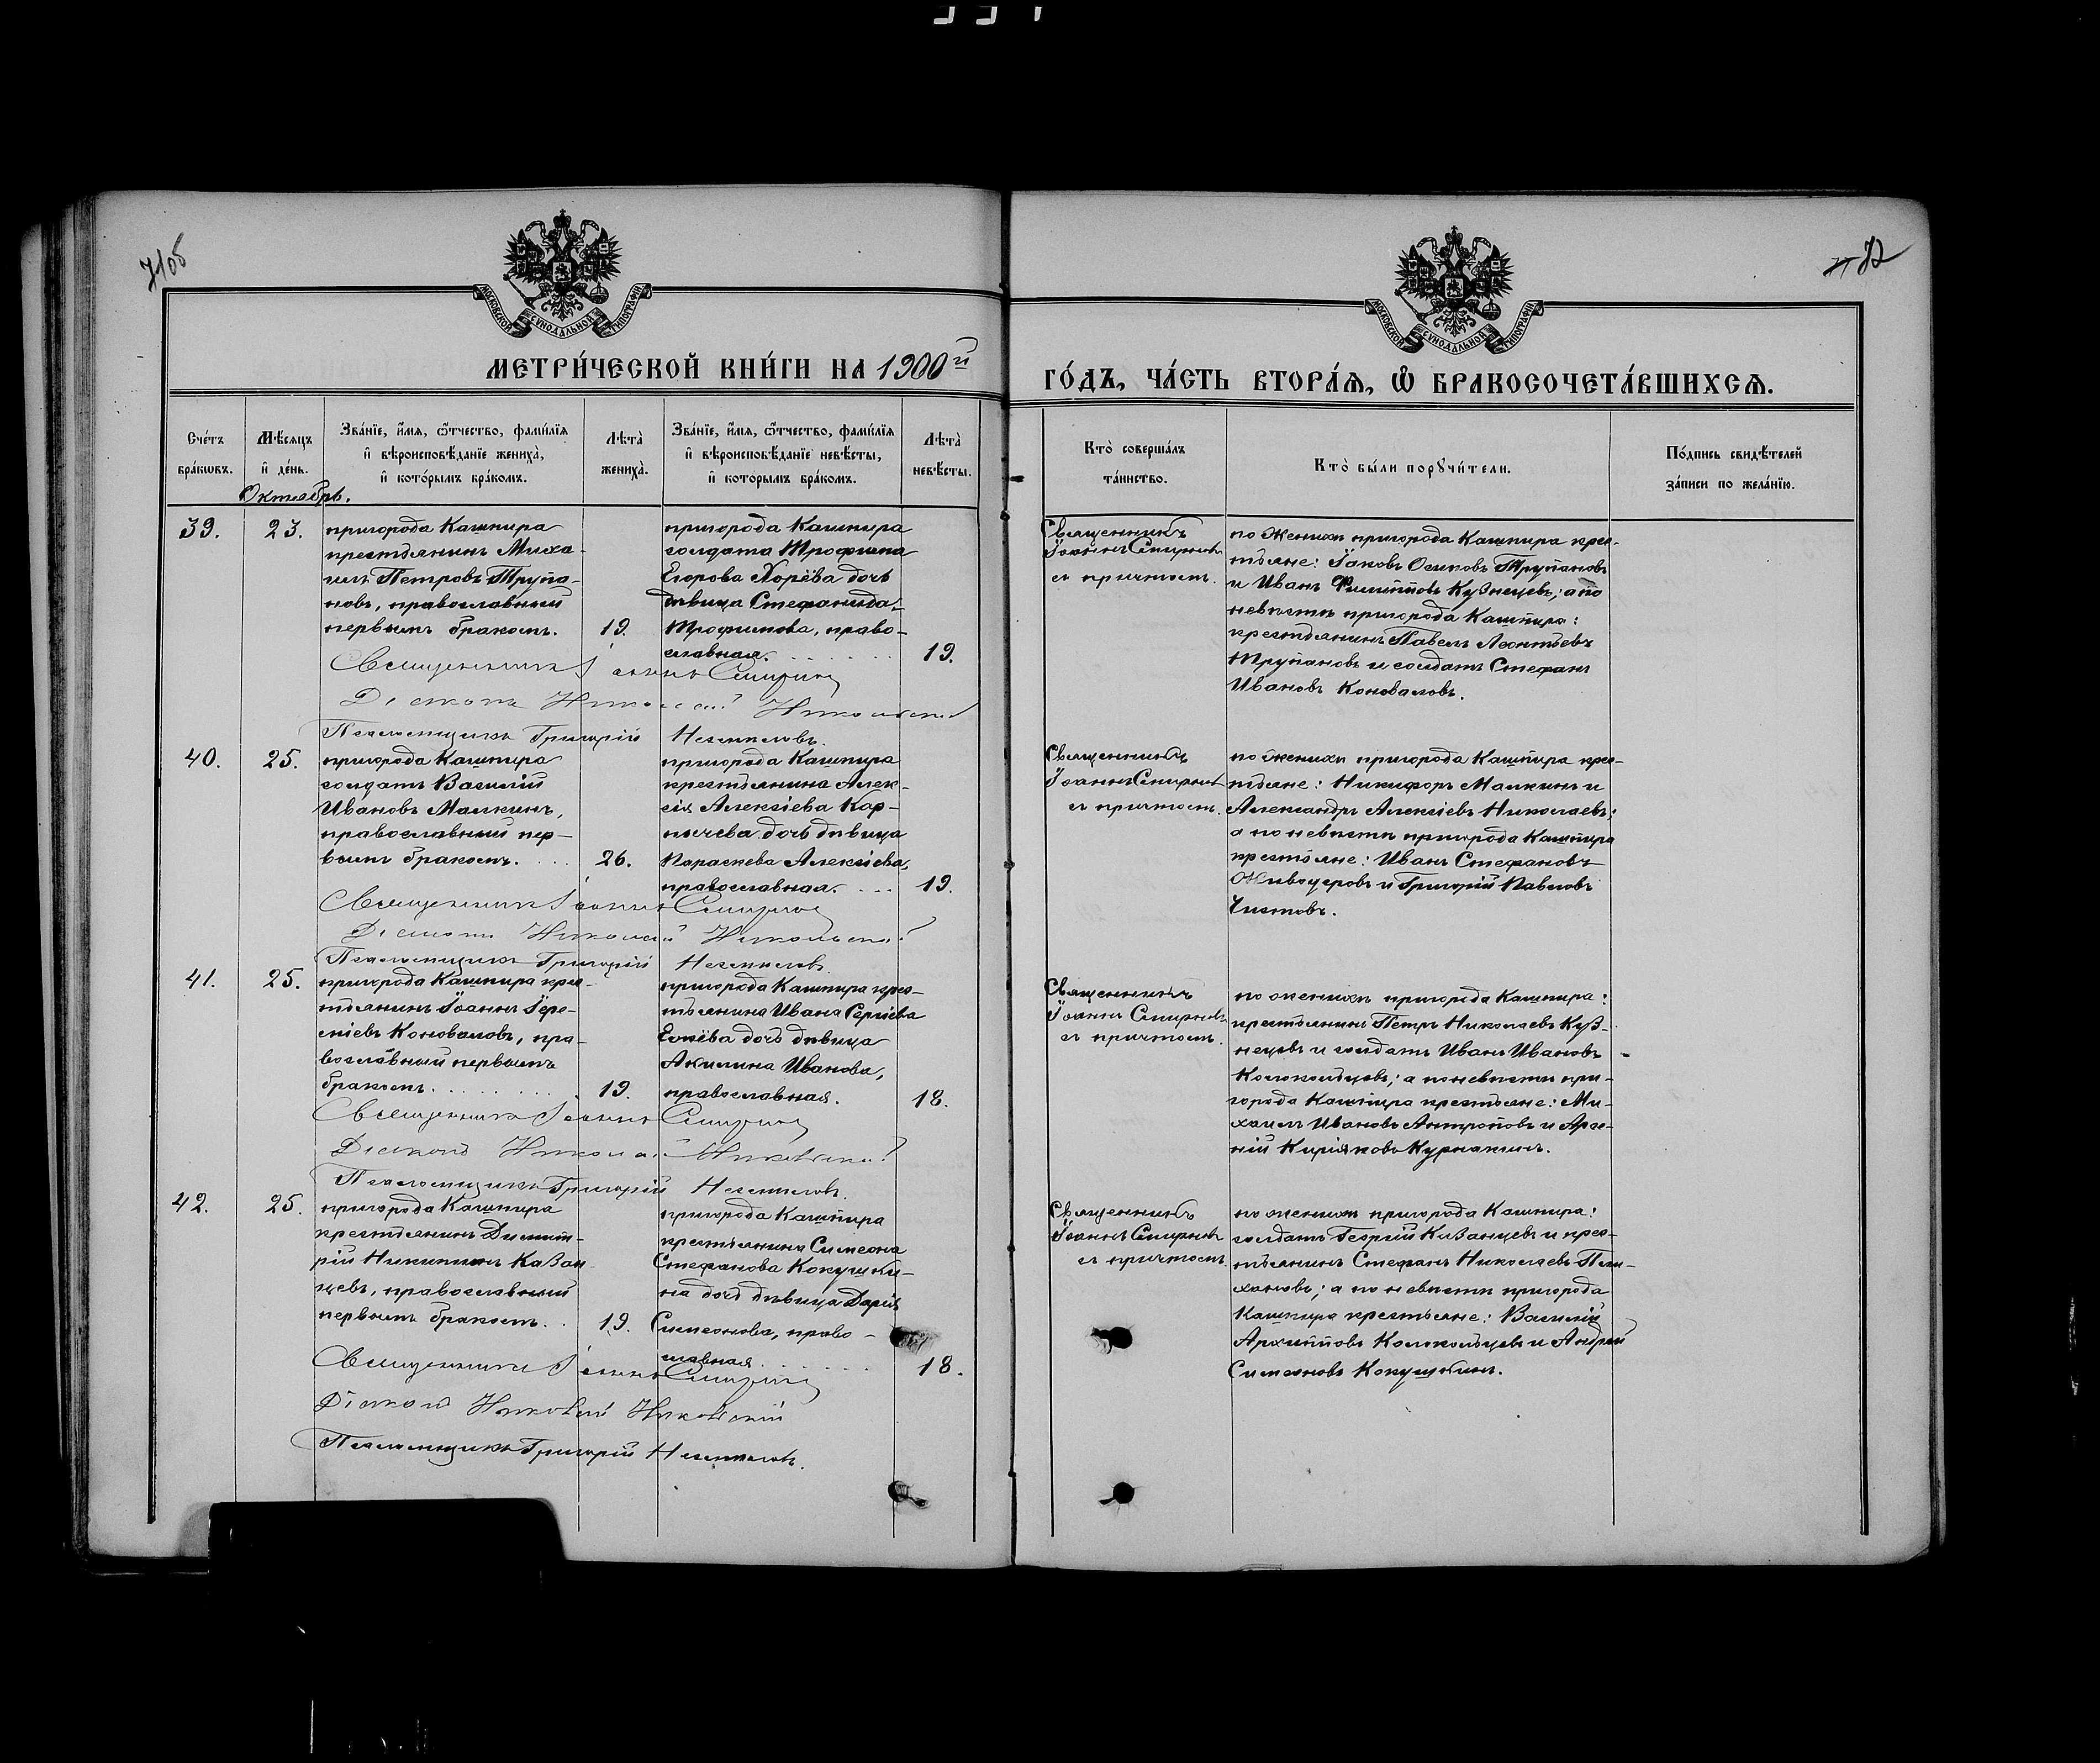 71об
72
МОСКОВСКОЙ СУНОДАЛЬНОЙ ТИПОГРАФІИ
МОСКОВСКОЙ СУНОДАЛЬНОЙ ТИПОГРАФІИ
МЕТРИ́ЧЕСКОЙ КНИ́ГИ НА 1900й
ГО́ДЪ, ЧА́СТЬ ВТОРА́Ѧ, Ѡ҆ БРАКОСОЧЕТА́ВШИХСѦ.
Счетъ
бра́кѡвъ.
Мѣ́сяцъ
и҆ де́нь.
Зва́нїе, и҆́мя, ѻ҆́тчество, фами́лїя
и҆ вѣроисповѣ́данїе жениха̀,
и҆ кото́рымъ бра́комъ.
Лѣта̀
жениха̀.
Зва́нїе, и҆́мя, ѻ҆́тчество, фами́лїя
и҆ вѣроисповѣ́данїе невѣ́сты,
и҆ которымъ бра́комъ.
Лѣта̀
невѣ́сты.
Кто̀ соверша́лъ
та́инство.
Кто̀ бы́ли порꙋчи́тели.
По́дпись свидѣ́телей
за́писи по жела́нїю.
Октябрь.
39.
23.
пригорода Кашпира
крестьянинъ Миха-
илъ Петровъ Трупа-
новъ, православный
первымъ бракомъ.
19.
пригорода Кашпира
солдата Трофима
Егорова Хорёва дочь
дѣвица Стефанида
Трофимова, право-
славная.
19.
Священникъ Іоаннъ Смирновъ
съ причтомъ.
по женихѣ пригорода Кашпира крес-
тьяне: Іаковъ Осиповъ Трупановъ
и Иванъ Филипповъ Кузнецовъ; а по
невѣстѣ пригорода Кашпира:
крестьянинъ Павелъ Леонтьевъ
Трупановъ и солдатъ Стефанъ
Ивановъ Коноваловъ.
Священникъ Іоаннъ Смирнов
Діаконъ Николай Никольский
Псаломщикъ Григорій
40.
25.
пригорода Кашпира
солдатъ Василій
Ивановъ Малкинъ,
православный пер-
вымъ бракомъ.
26.
пригорода Кашпира
крестьянина Алек-
сія Алексіева Кар-
пычева дочь дѣвица
Параскева Алексіева,
православная.
19.
Священникъ
Іоаннъ Смирновъ
съ причтомъ.
по женихѣ пригорода Кашпира крес-
тьяне: Никифоръ Малкинъ и
Александръ Алексіевъ Николаевъ;
а по невѣстѣ пригорода Кашпира
крестьяне: Иванъ Стефановъ
Живодеровъ и Григорій Павловъ
Чистовъ.
Священникъ Іоаннъ Смирнов
Діаконъ Николай Никольский
Псаломщикъ Григорій
41.
25.
пригорода Кашпира крес-
тьянинъ Іоаннъ Іере-
міевъ Коноваловъ, пра-
вославный первымъ
бракомъ.
19.
пригорода Кашпира крес-
тьянина Ивана Сергіева
дочь дѣвица
Акилина Иванова,
православная.
18.
Священникъ
Іоаннъ Смирновъ
съ причтомъ.
по женихѣ пригорода Кашпира:
крестьянинъ Петръ Николаевъ Куз-
нецовъ и солдатъ Иванъ Ивановъ
Колокольцевъ; а по невѣстѣ при-
города Кашпира крестьяне: Ми-
хаилъ Ивановъ Антроповъ и Арсе-
ній Киріаковъ Курнакинъ.
Священникъ Іоаннъ Смирнов
Діаконъ Николай Никольский
Псаломщикъ Григорій
42.
25.
пригорода Кашпира
крестьянинъ Димит-
рій Никитинъ Казан-
цевъ, православный
первымъ бракомъ.
19.
пригорода Кашпира
крестьянина Симеона
Стефанова Кокушки-
на дочь дѣвица Дарія
Симеонова, право-
славная.
18.
Священникъ
Іоаннъ Смирновъ
съ причтомъ.
по женихѣ пригорода Кашпира:
солдатъ Георгій Казанцевъ и крес-
тьянинъ Стефанъ Николаевъ Пли-
хановъ; а по невѣстѣ пригорода
Кашпира крестьяне: Василій
Архиповъ Колокольцевъ и Андрей
Симеоновъ Кокушкинъ.
Священникъ Іоаннъ Смирнов
Діаконъ Николай Никольскій
Псаломщикъ Григорій